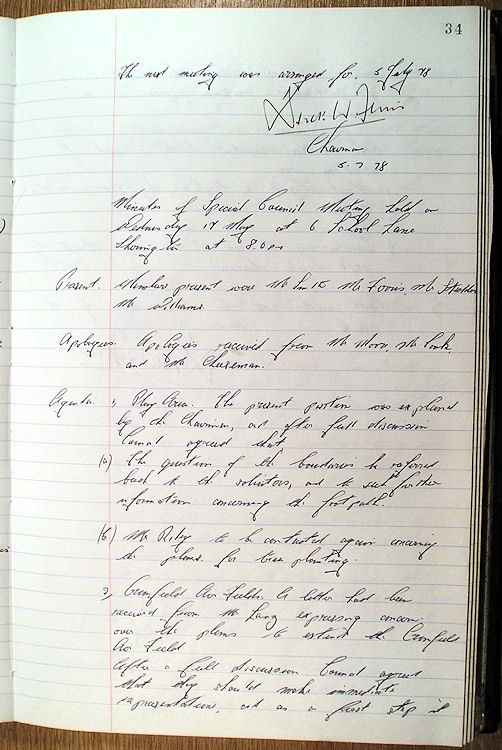 34
The next meeting was arranged for 5 July 78
Chairman
5.7.78
Minutes of Special Council Meeting held on
Wednesday 17 May at 6 School Lane
at 8.0 pm
Present. Members present were Mr Mr Ferris, Mr
Mr Williams.
Apologies. Apologies received from Mr Moore, Mr
and Mr Cheeseman.
Agenda. 1, Play Area. The present position was explained
by the Chairman, and after full discussion
Council agreed that,
(a) The question of the boundaries be referred
back to the solicitors, and to seek further
information concerning the footpath.
(b) Mr Riley to be contacted again concerning
the plans for tree planting.
2, Cranfield Air Field. A letter had been
received from Mr Lang expressing concern
over the plans to extend the Cranfield
Air Field
After a full discussion Council agreed
that they should make immediate
representation, and as a first step it